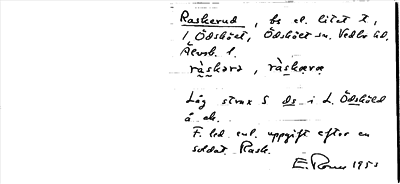 Raskerud, bs el. litet t,
i Ödskölt, Ödskölt sn. Vedbo hd,
Älvsb. l.
ràskərə, ràskərə
Låg strax S ds i L. Ödskölt
å ek.
F. led enl. uppgift efter en
soldat Rask.
1953